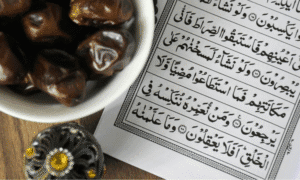 يَكْسِبُوْنَ ۝ وَلَوْ نَشَآءُ
اَعْيُنِهِمْ فَاسْتَبَقُوا الصِّرَاطَ فَاَنّٰى
يُبْصِرُوْنَ ۝ وَلَوْ نَشَآءُ لَمَسَخْنٰهُمْ عَلٰى
مَكَانَتِهِمْ فَمَا اسْتَطَاعُوْا مُضِيًّا وَّلَا
يَرْجِعُوْنَ ۝ وَمَنْ نُّعَمِّرْهُ نُنَكِّسْهُ فِى
الْخَلْقِ اَفَلَا يَعْقِلُوْنَ ۝ وَمَا عَلَّمْنٰهُ